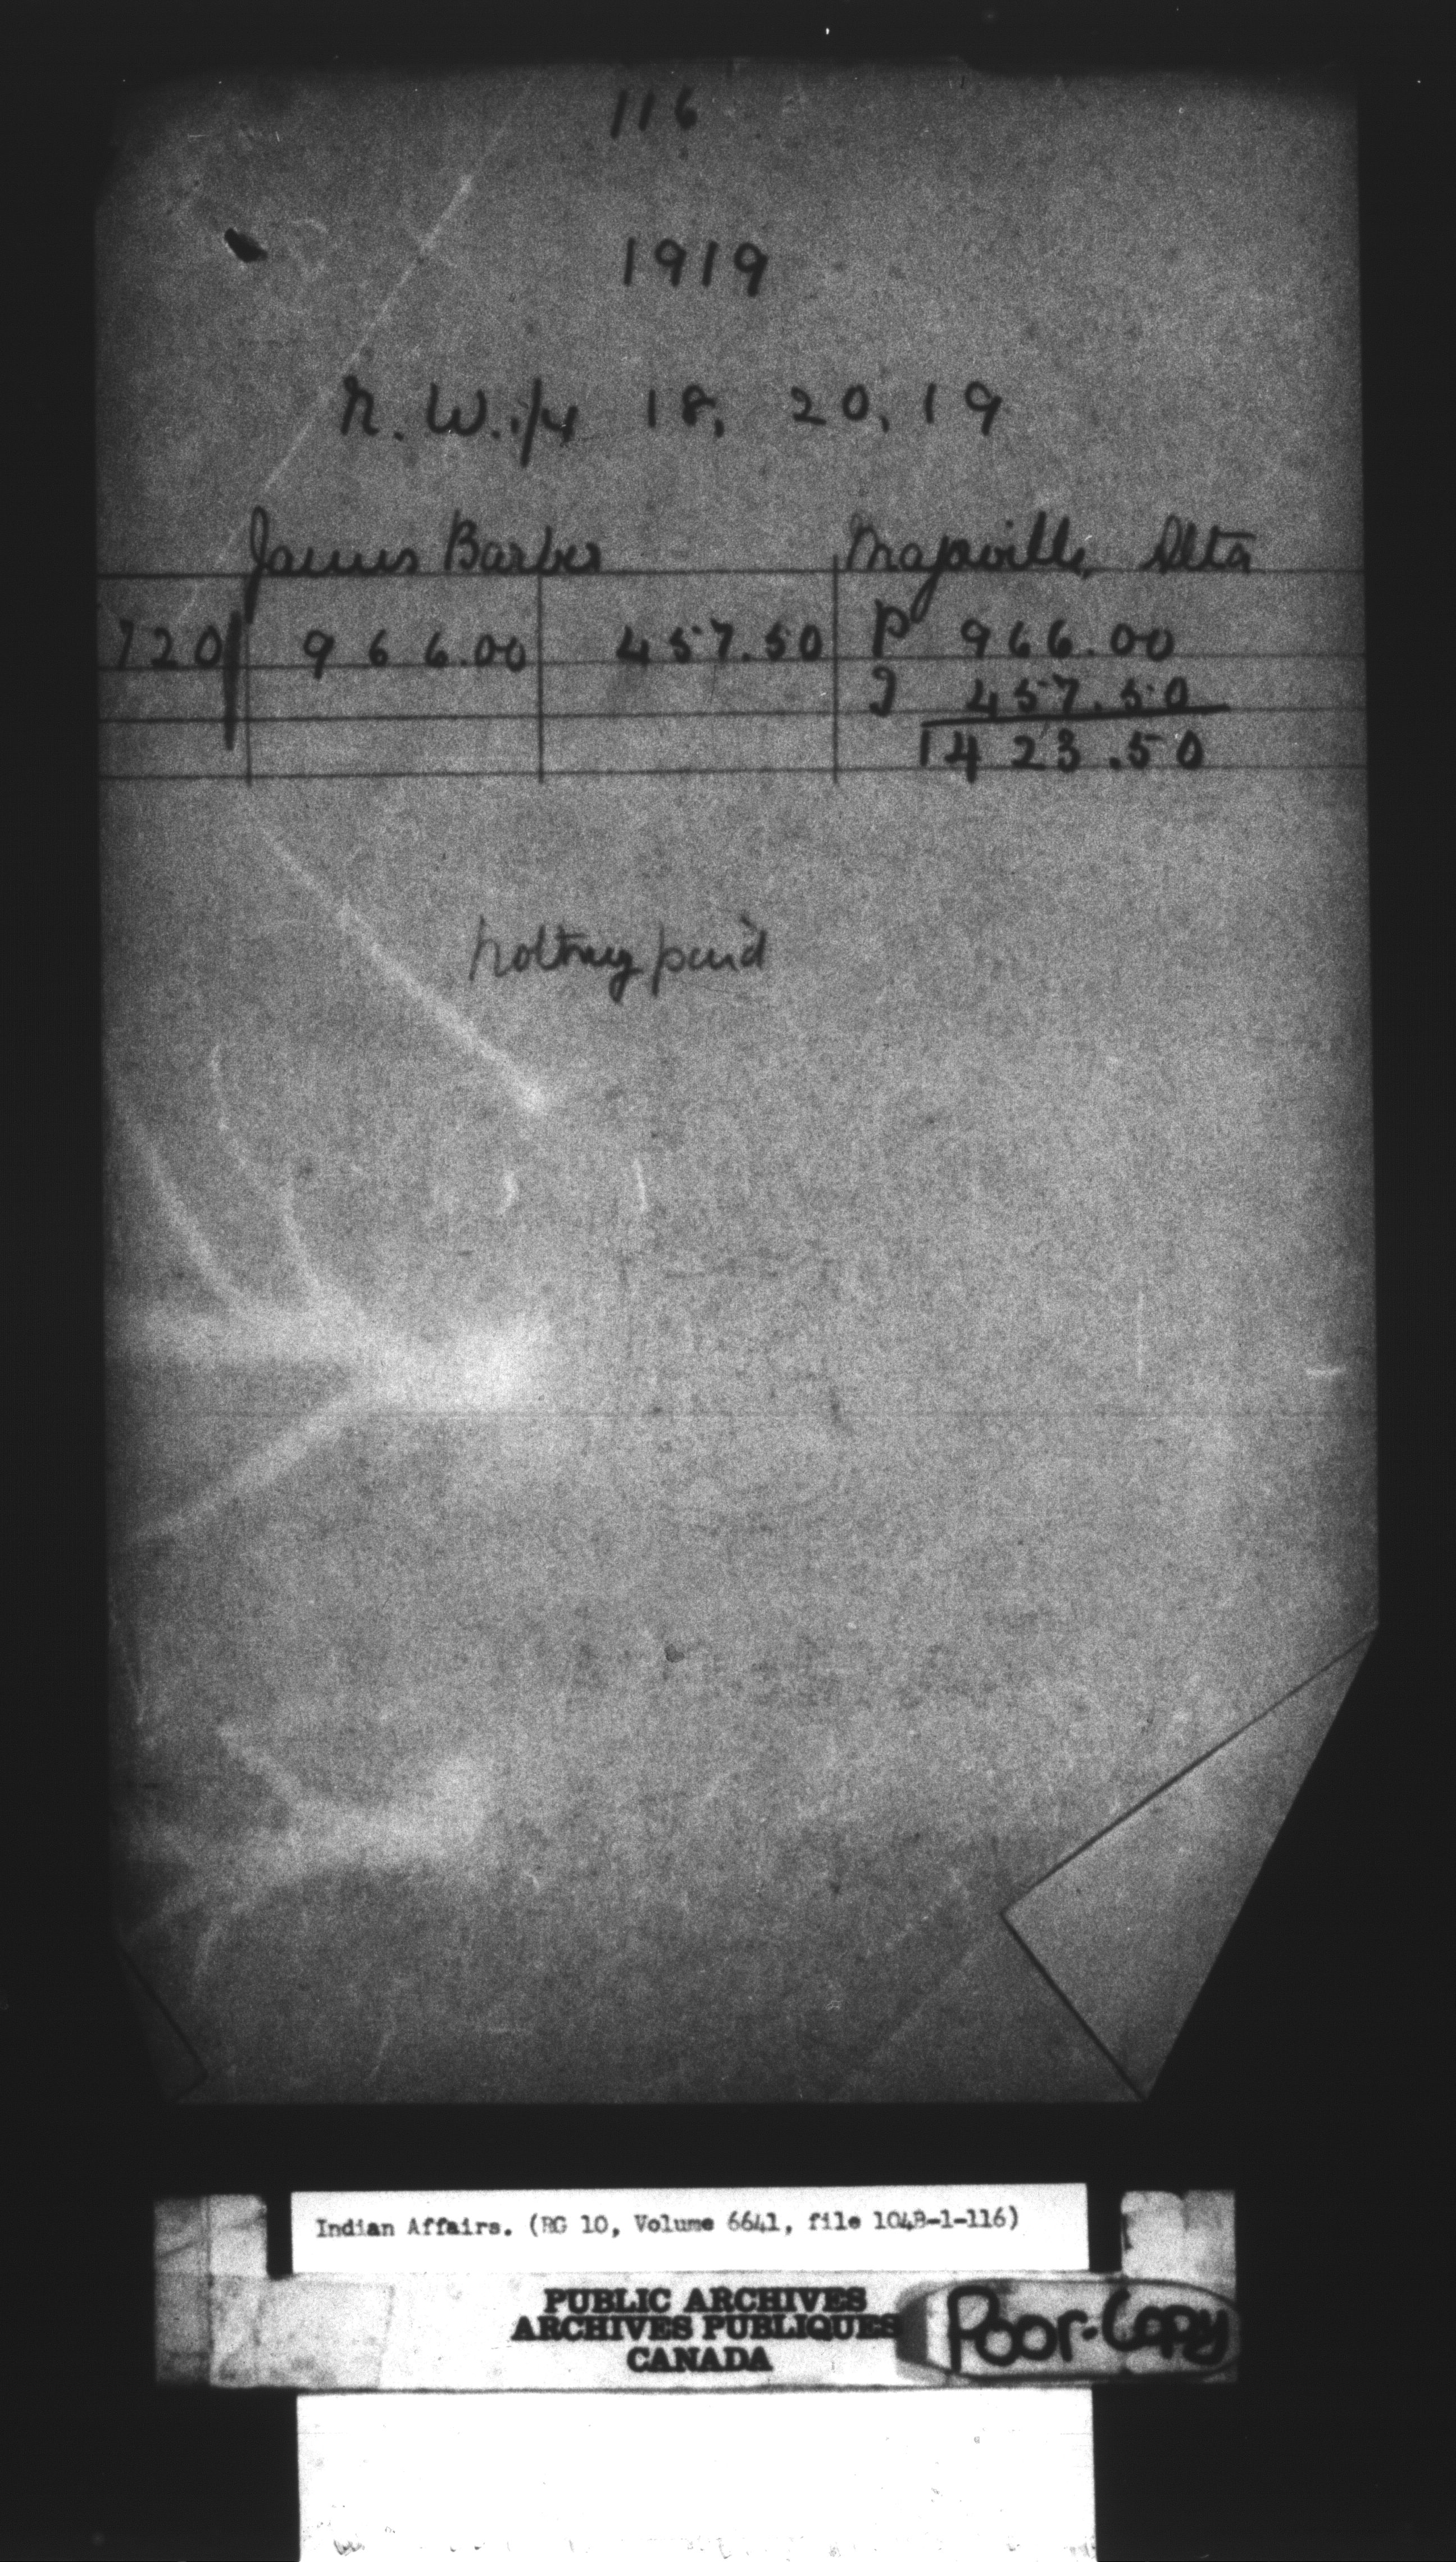 116
1919
N. W. 1/4 18, 20, 19
James Barber Majorville, Alta
720 966.00 457.50 P 966.00
I 457.50
1423.50
Nothing paid
Indian Affairs. (RG 10, Volume 6641, file 104B-1-116)
PUBLIC ARCHIVES
ARCHIVES PUBLIQUES
CANADA
Poor-Copy